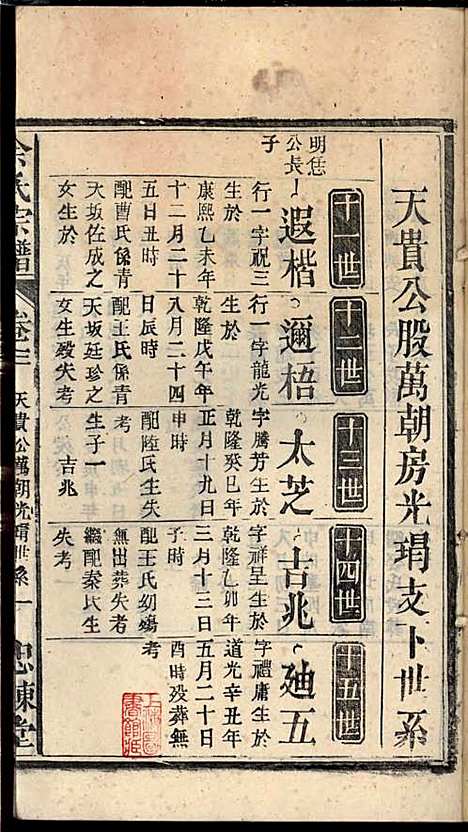 天貴公股萬朝房光瑁支下世系
十一世
十二世
十三世
十四世
十五世
明恁公長子
遐楷
行一字祝三
生於
康熙乙未年
十二月二十
五日丑時
配曹氏係青
天坂佐成之
女生於
邇梧
行一字龍光
生於
乾隆戊午年
八月二十四
日辰時
配王氏係青
天坂廷珍之
女生歿失考
太芝
字騰芳生於
乾隆癸巳年
正月十九日
申時
配陸氏生失
考
生子一
吉兆
吉兆
字祥呈生於
乾隆乙卯年
三月十三日
子時
配王氏幼殤
無出葬失考
繼配秦氏生
失考
廸五
字禮庸生於
道光辛丑年
五月二十日
酉時歿葬無
考
余氏宗譜
卷之
天貴公萬朝光瑁世系
一
忠諫堂